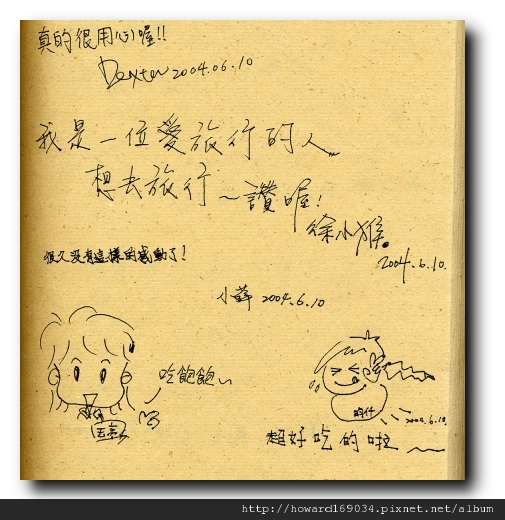 真的很用心喔!!
Dexter 2004.06.10
我是一位愛旅行的人
想去旅行~讚喔!
徐小猴。
2004.6.10.
很久沒有這樣的感動了!
小薛 2004.6.10
吃飽飽~
2004.6.10.
超好吃的啦~
http://howard169034.pixnet.net/album